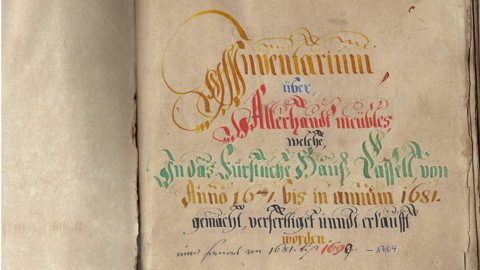 Inventarium,
über,
Allerhandt meübles,
welche,
In das Fürstliche Hauß Cassell von
Anno 1671. bis in annum 1681.
gemacht, verfertiget unndt erkaufft
worden.
von 1681. biß 1699. – 1704